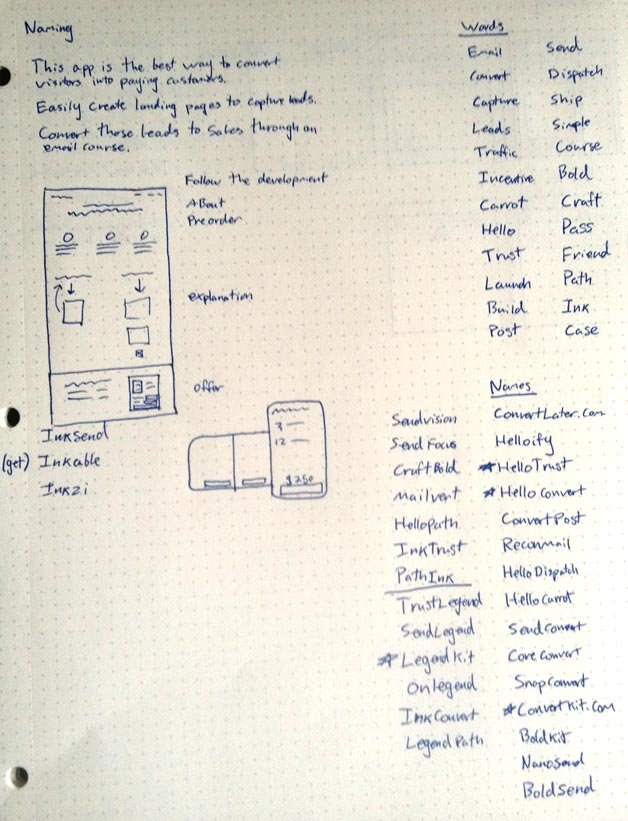 Naming
This app is the best way to convert
visitors into paying customers.
Easily create landing pages to capture leads.
Convert those leads to sales through an
email course.
Follow the development
About
Preorder
explanation
offer
3
12
$250
InkSend
(get) Inkable
Inkzi
Words
Email Send
Convert Dispatch
Capture Ship
Leads Simple
Traffic Course
Incentive Bold
Carrot Craft
Hello Pass
Trust Friend
Launch Path
Build Ink
Post Case
Names
Sendvision ConvertLater.com
Send Focus Helloify
CraftBold *HelloTrust
Mailvert *Hello Convert
HelloPath ConvertPost
InkTrust Reconmail
PathInk Hello Dispatch
TrustLegend HelloCarrot
SendLegend SendConvert
*LegendKit CoreConvert
OnLegend SnapConvert
InkConvert *ConvertKit.com
LegendPath BoldKit
NanoSend
BoldSend